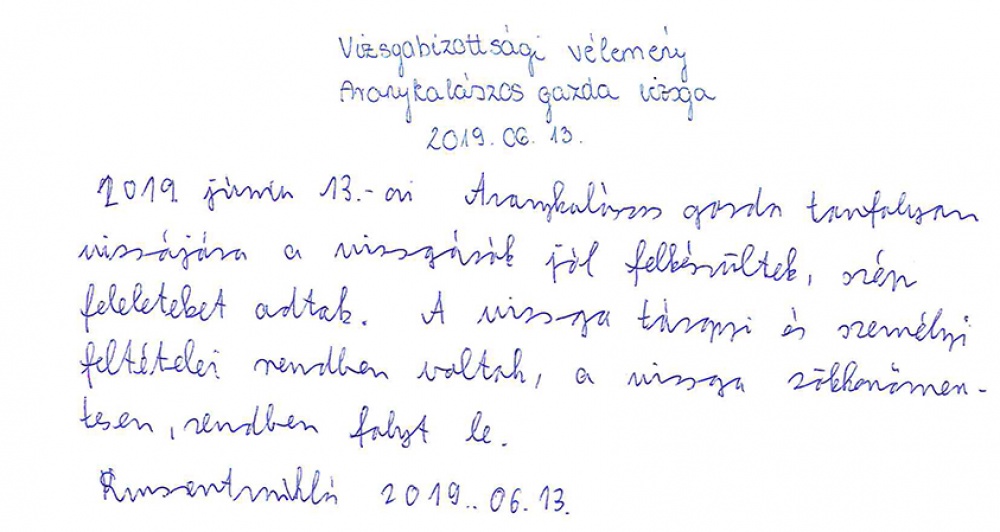 Vizsgabizottsági vélemény
Aranykalászos gazda vizsga
2019. 06. 13.
2019 június 13.-ai Aranykalászos gazda tanfolyam
vizsgájára a vizsgázók jól felkészültek, szép
feleleteket adtak. A vizsga tárgyi és személyi
feltételei rendben voltak, a vizsga zökkenőmen-
tesen, rendben folyt le.
Kunszentmiklós 2019.. 06. 13.